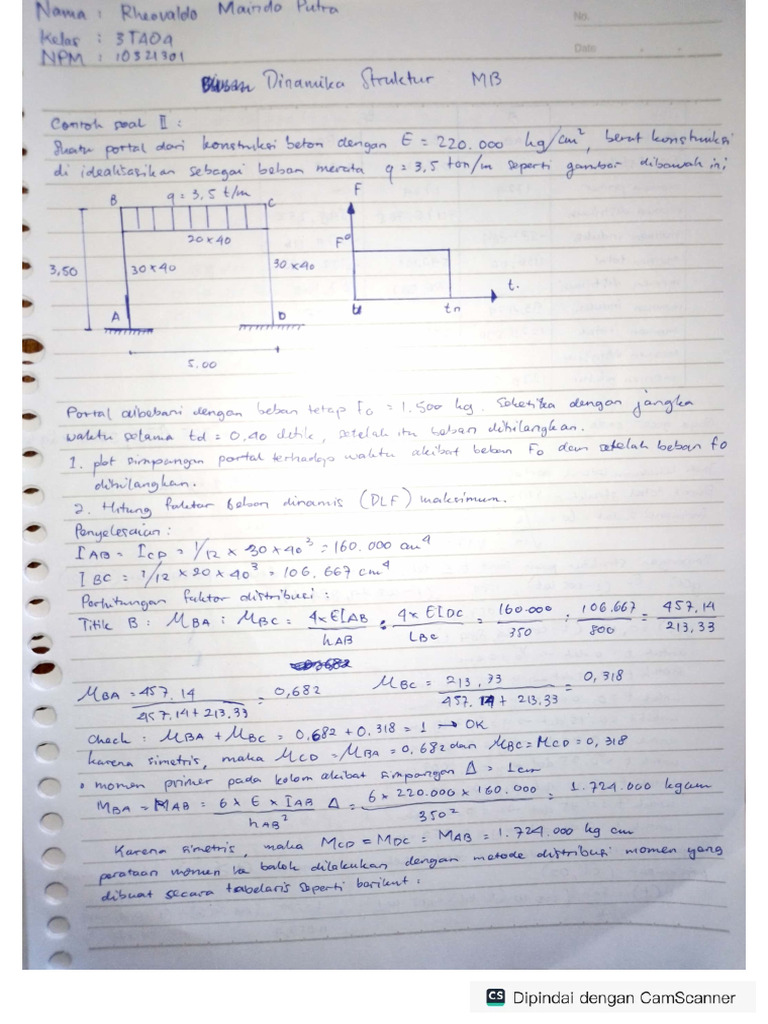 Nama : Rheovaldo Mairdo Putra
No.
Kelas : 3TA04
Date
NPM : 10321301
Dinamika Struktur MB
Contoh soal II :
Suatu portal dari konstruksi beton dengan E = 220.000 kg/cm², berat konstruksi
di idealisasikan sebagai beban merata q = 3,5 ton/m seperti gambar dibawah ini
B q = 3,5 t/m C
F
20 x 40
F⁰
3,50
30 x 40
30 x 40
t.
A
D
tn
5.00
Portal dibebani dengan beban tetap Fo = 1.500 kg. Seketika dengan jangka
waktu selama td = 0,40 detik, setelah itu beban dihilangkan.
1. plot simpangan portal terhadap waktu akibat beban Fo dan setelah beban fo
dihilangkan.
2. Hitung faktor Beban dinamis (DLF) maksimum.
Penyelesaian :
I AB = I CD = 1/12 x 30 x 40³ = 160.000 cm⁴
I BC = 1/12 x 20 x 40³ = 106.667 cm⁴
Perhitungan faktor distribusi :
Titik B : μBA : μBC = 4x EIAB / hAB : 4x EIDC / LBC = 160.000 / 350 : 106.667 / 500 = 457,14 / 213,33
μBA = 457,14 / 457,14 + 213,33 = 0,682 μBC = 213,33 / 457,14 + 213,33 = 0,318
Check : μBA + μBC = 0,682 + 0,318 = 1 → OK
karena simetris, maka μCD = μBA = 0,682 dan μBC = μCD = 0,318
• momen primer pada kolom akibat simpangan Δ = 1cm
MBA = MAB = 6 x E x IAB / hAB² Δ = 6 x 220.000 x 160.000 / 350² = 1.724.000 kgcm
Karena simetris, maka MCD = MDC = MAB = 1.724.000 kg cm
perataan momen ke balok dilakukan dengan metode distribusi momen yang
dibuat secara tabelaris seperti berikut :
CS Dipindai dengan CamScanner